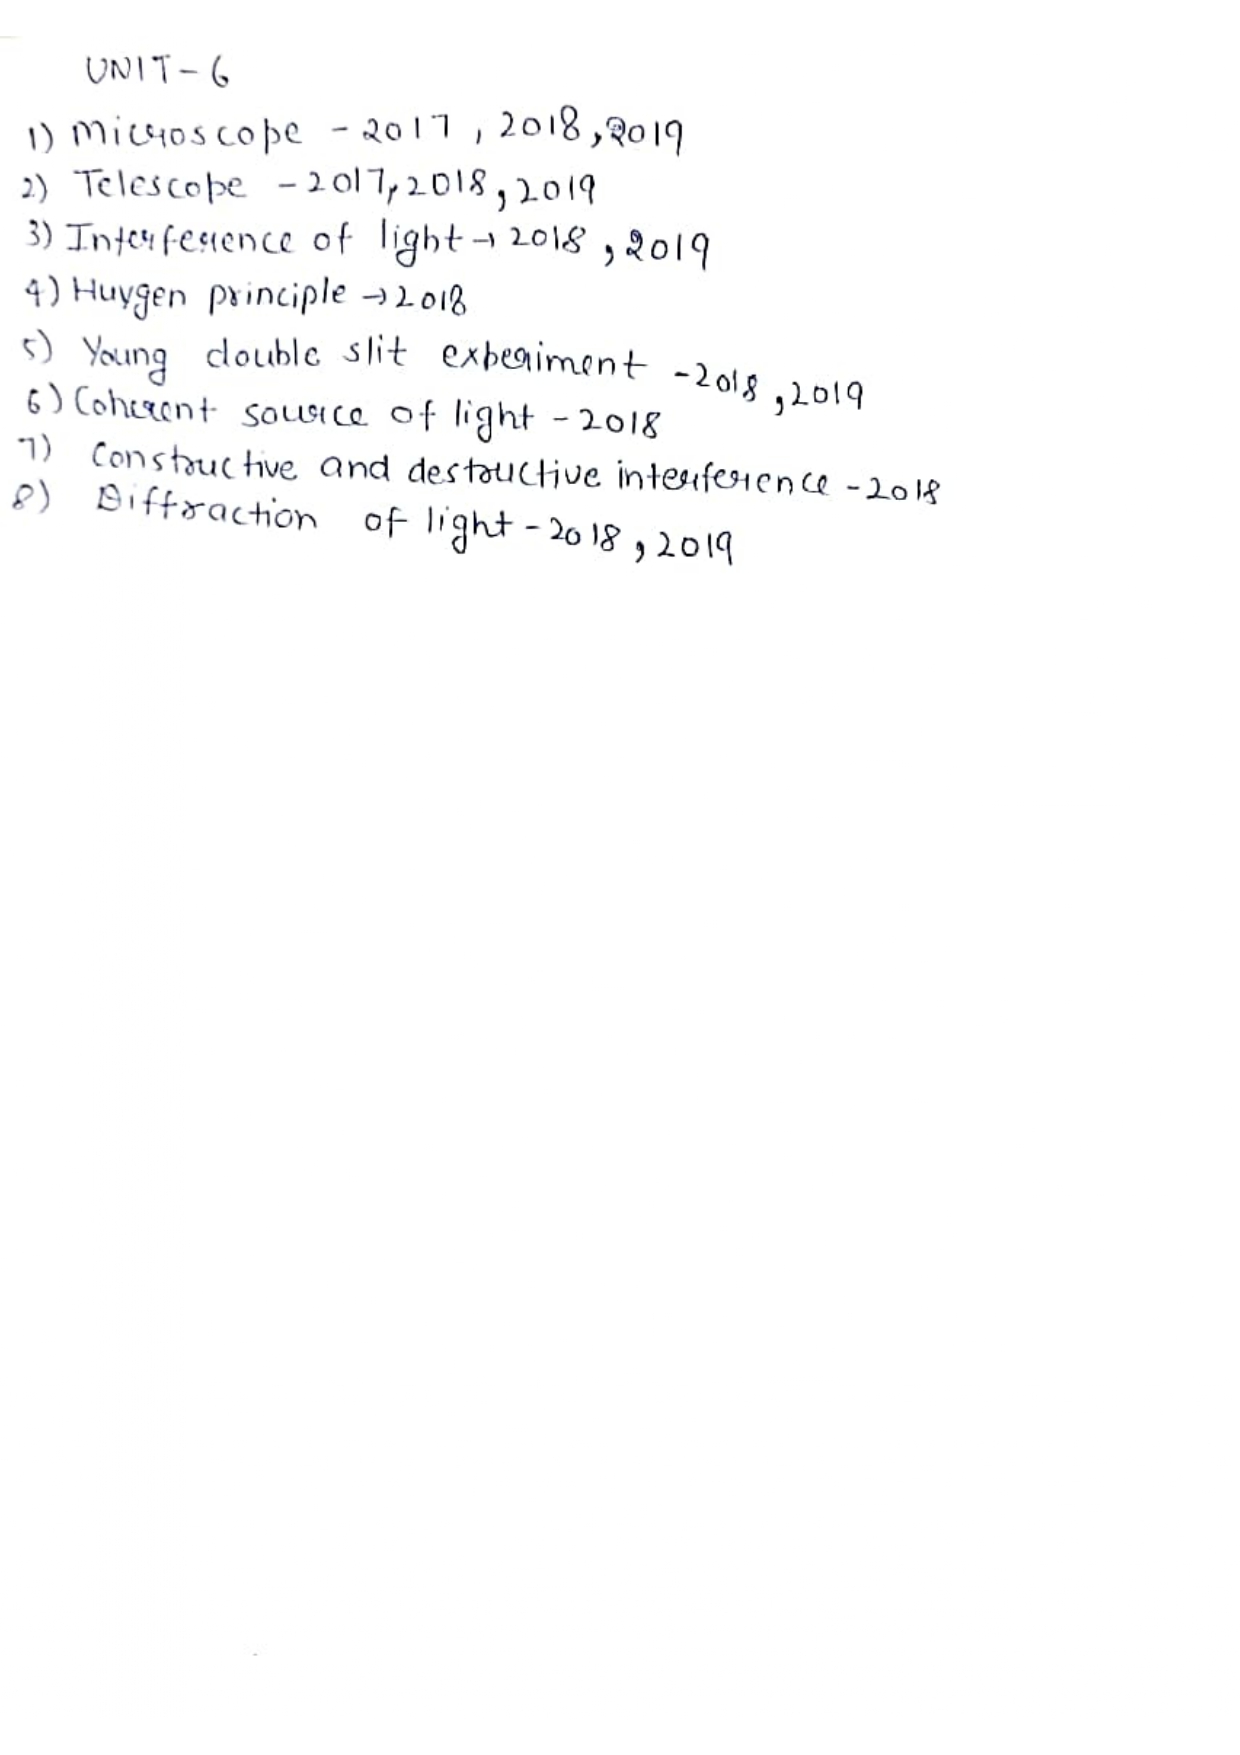 UNIT-6
1) Microscope - 2017, 2018, 2019
2) Telescope - 2017, 2018, 2019
3) Interference of light → 2018, 2019
4) Huygen principle → 2018
5) Young double slit experiment - 2018, 2019
6) Coherent source of light - 2018
7) Constructive and destructive interference - 2018
8) Diffraction of light - 2018, 2019